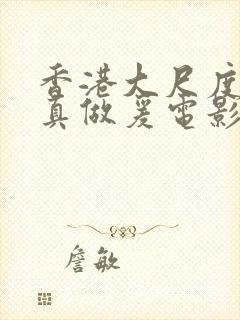 香港大尺度
真做爰电影
詹敏